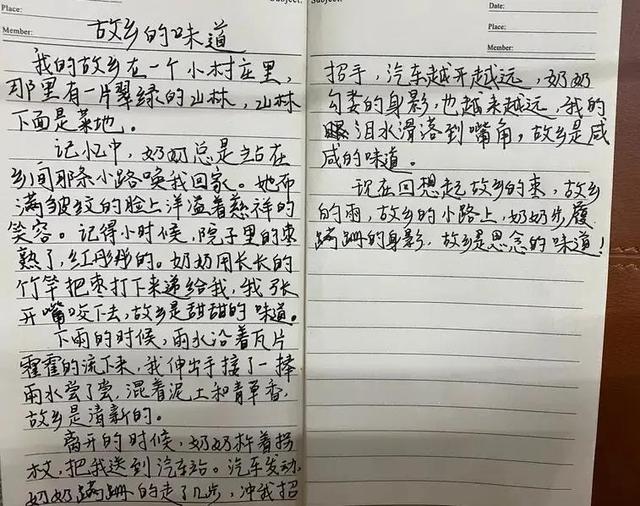 Place:
Member:
故乡的味道
我的故乡在一个小村庄里,
那里有一片翠绿的山林,山林
下面是菜地。
记忆中,奶奶总是站在
乡间那条小路唤我回家。她布
满皱纹的脸上洋溢着慈祥的
笑容。记得小时候,院子里的枣
熟了,红彤彤的。奶奶用长长的
竹竿把枣打下来递给我,我张
开嘴咬下去,故乡是甜甜的味道。
下雨的时候,雨水沿着瓦片
霍霍的流下来,我伸出手接了一捧
雨水尝了尝,混着泥土和青草香,
故乡是清新的。
离开的时候,奶奶杵着拐
杖,把我送到汽车站。汽车发动,
奶奶蹒跚的走了几步,冲我招
Date:
Place:
Member:
招手,汽车越开越远,奶奶
勾娄的身影,也越来越远,我的
泪水滑落到嘴角,故乡是咸
咸的味道。
现在回想起故乡的枣,故乡
的雨,故乡的小路上,奶奶步履
蹒跚的身影,故乡是思念的味道!